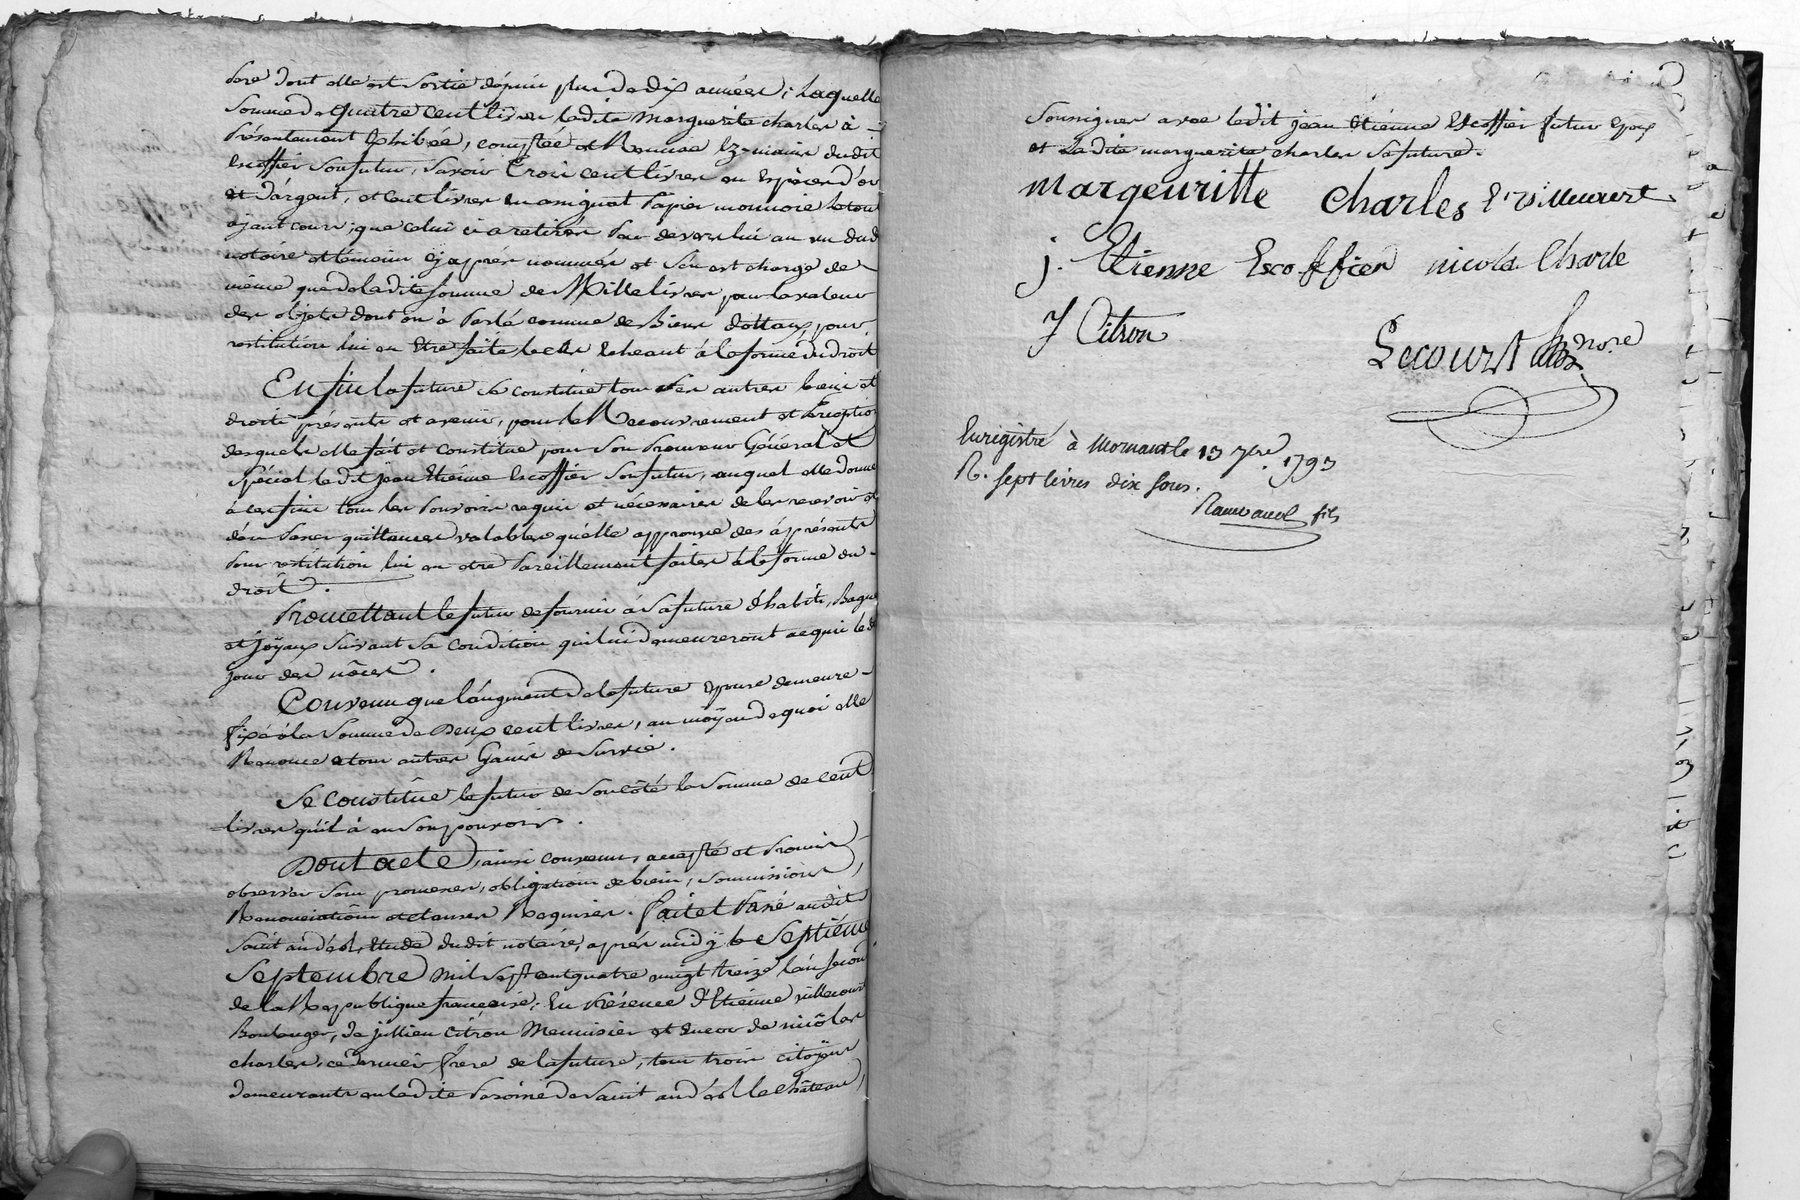 Pere dont elle est sortie dépuis plus de dix années; Laquelle
Somme de quatre cent livres ladite marguerite charles à
Présentement Exhibée, comptée et Remise Ez-mains dudit
Escoffier son futur, savoir trois cent livres en Espèces d'or
et d'argent, et cent livres en assignat Papier monnoie le tout
ayant cours; que celui ci a retirées Par devers lui au vu dud
notaire et témoins cy après nommés et s'en est chargé de
même que de la dite somme de Mille livres pour la valeur
des objets dont on à Parlé comme de Biens dottaux, pour
restitution lui en Etre faite le cas Echeant à la forme du droit
Enfin la future se constitue tous ses autres biens et
droits présents et avenir, pour le Recouvrement et Perception
desquels elle fait et constitue pour son Procureur Général et
Spécial ledit jean Etienne Escoffier son futur, auquel elle donne
à ces fins tous les Pouvoirs requis et nécessaires de les recevoir et
d'en Passer quittances valables qu'elle approuve des àprésents
Pour restitution lui en etre Pareillement faites à la forme du
droit.
Promettant le futur de fournir à sa future d'habits, Bagues
et joyaux suivant sa condition qui lui demeureront acquis led
jour des nôces.
Convenu que l'augment de la future Epouse demeure
fixé à la Somme de Deux cent livres, au moyen de quoi elle
Renonce à tous autres Gains de survie.
Se Constitue le futur de son côté la somme de cent
livres qu'il à en son pouvoir.
Dont acte, ainsi convenu, accepté et Promis
observer sous promesses, obligations de biens, soumissions,
Renonciations et clauses Requises. fait et Passé audit
Saint andéol, Etude dudit notaire, après midÿ le Septième
Septembre mil sept cent quatre vingt treize l'an second
de la République francoise; En Présence d'Etienne villecourt
Boulanger, de jullien Citron Menuisier et Encor de nicolas
charles, ce dernier frere de la future, tous trois citoÿens
demeurants en ladite Paroisse de Saint andéol le château,
Soussignes avec ledit jean Etienne Escoffier futur Epoux
et Ladite marguerite charles sa future.
margeuritte charles E. Villecourt
j. Etienne Escoffier nicola Charle
J Citron
Lecourt nore
Enrigistré à Mornant le 13 7bre. 1793
R. sept livres dix sous.
fils